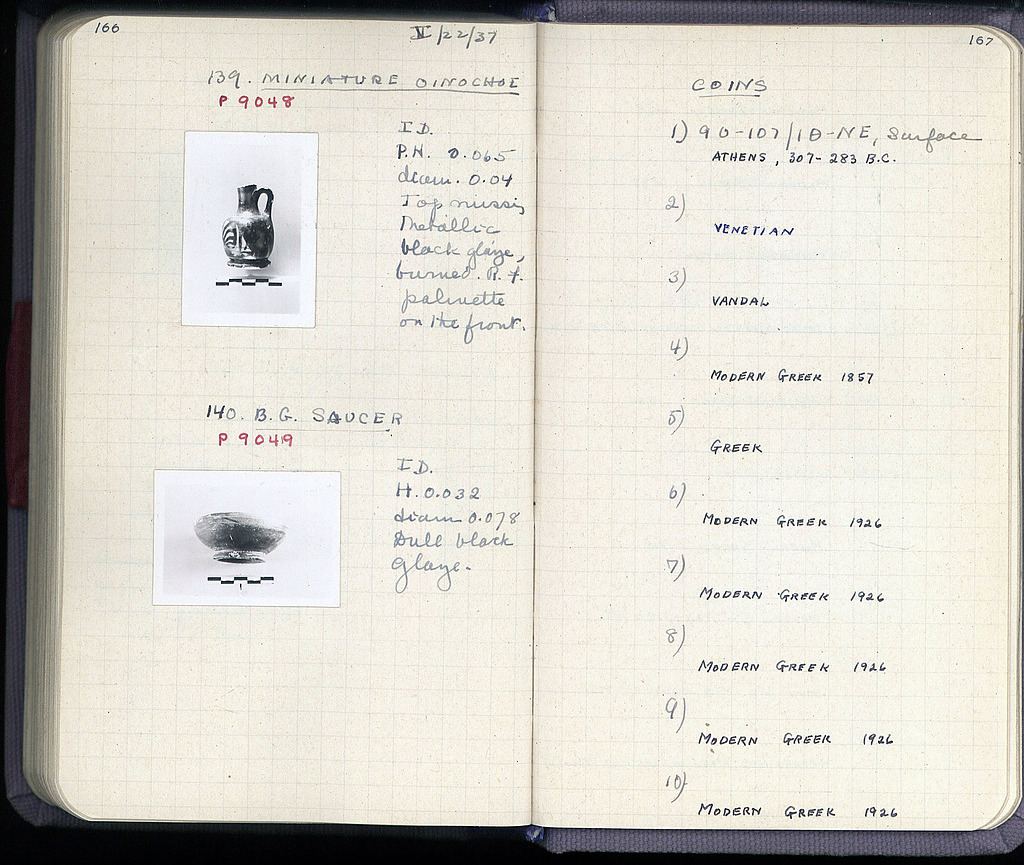 166
V/22/37
139. MINIATURE OINOCHOE
P 9048
I D.
P.H. 0.065
diam. 0.04
Top missing
Metallic
black glaze,
burned. R. f.
palmette
on the front.
140. B.G. SAUCER
P 9049
I D.
H. 0.032
diam 0.078
Dull black
glaze.
167
COINS
1) 90-107/ -NE, Surface
ATHENS, 307-283 B.C.
2)
VENETIAN
3)
VANDAL
4)
MODERN GREEK 1857
5)
GREEK
6)
MODERN GREEK 1926
7)
MODERN GREEK 1926
8)
MODERN GREEK 1926
9)
MODERN GREEK 1926
10)
MODERN GREEK 1926